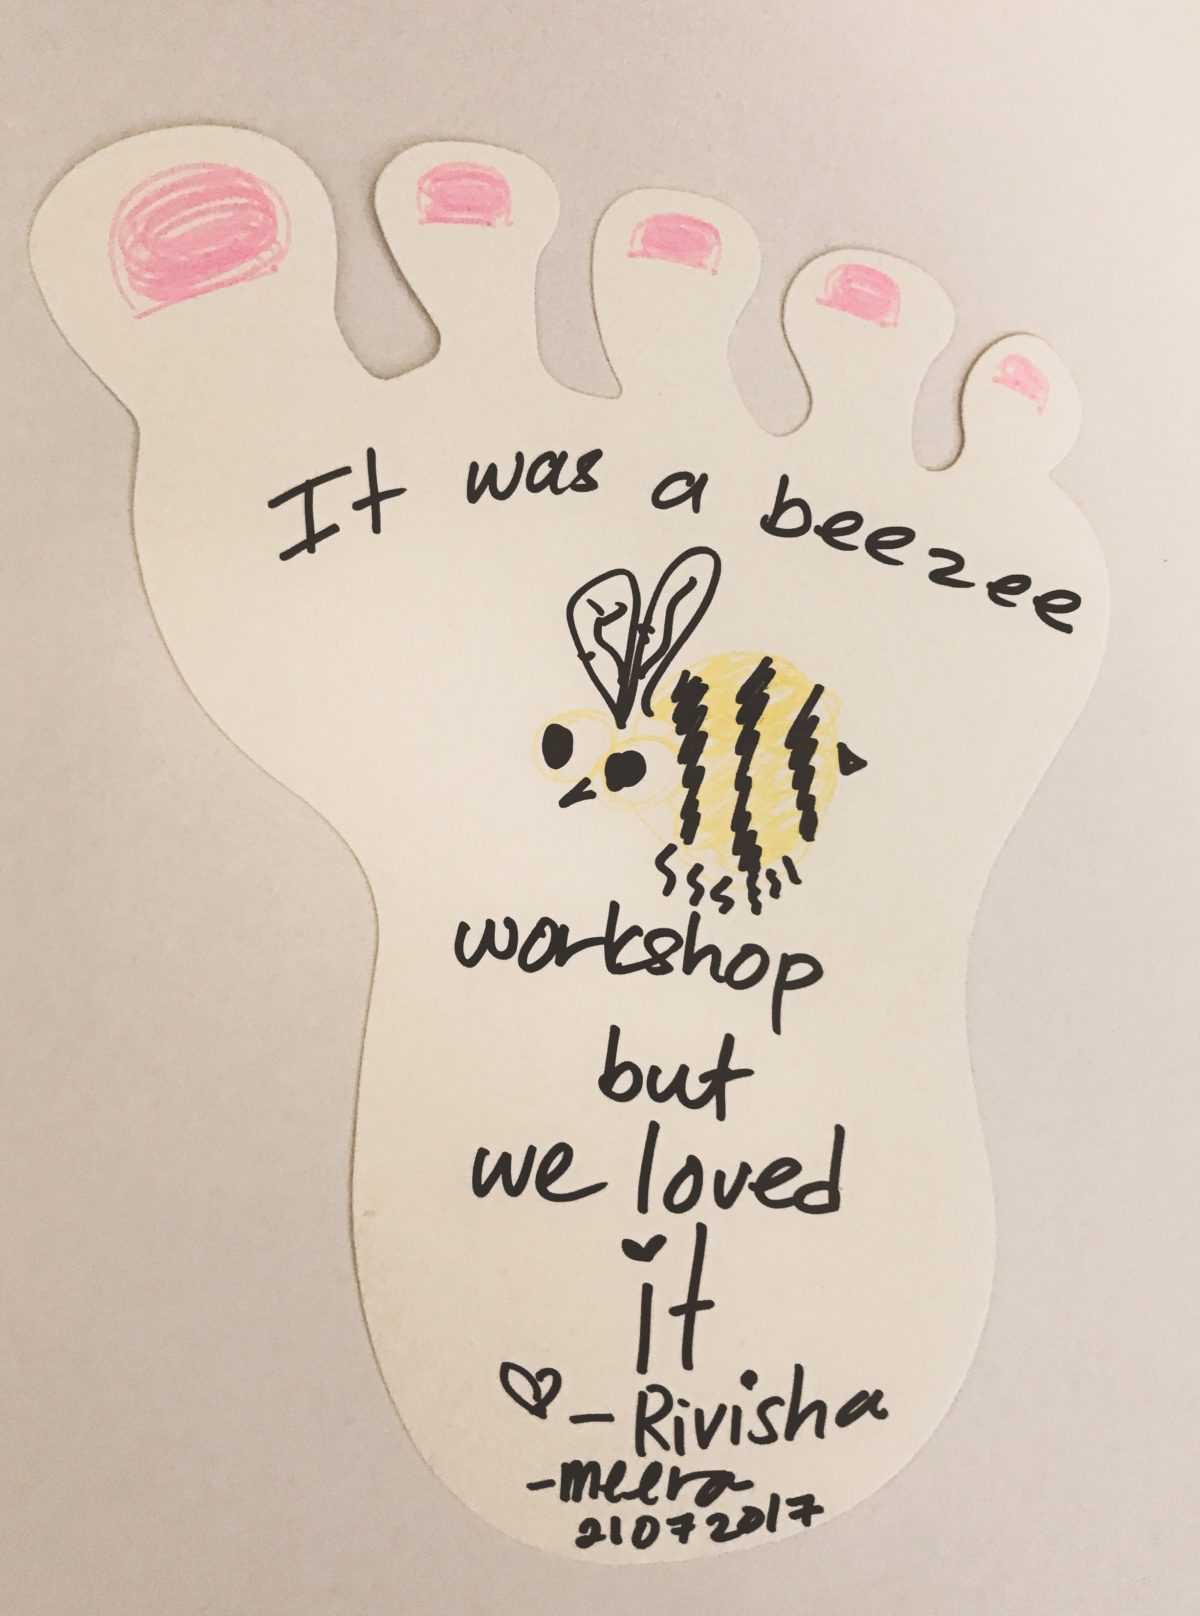 It was a beezee
workshop
but
we loved
it
- Rivisha
- meera
21072017